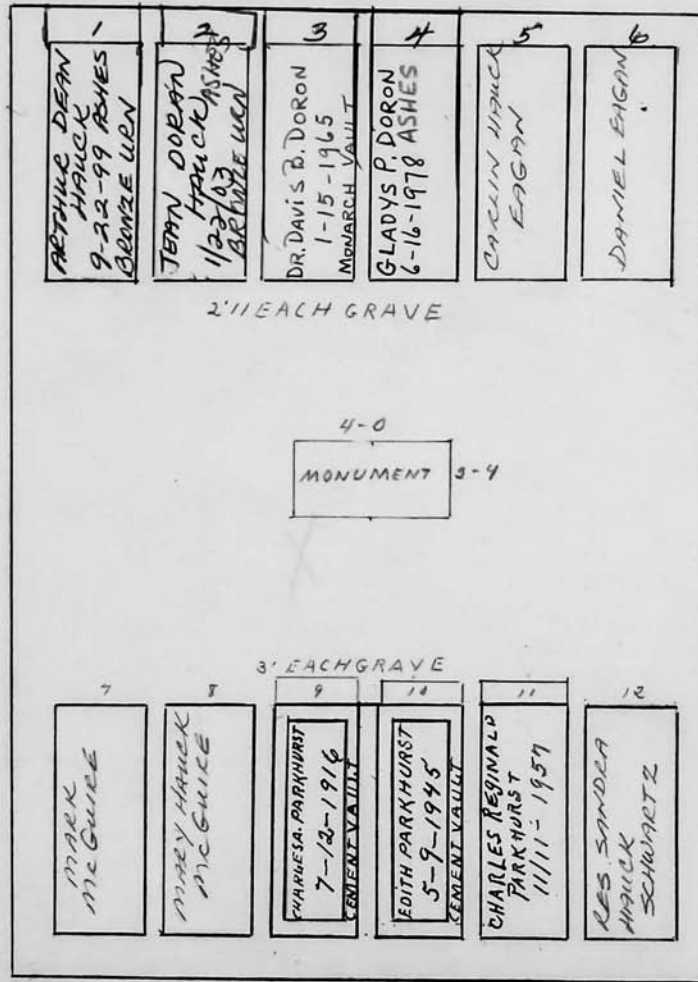 1
ARTHUR DEAN
HAUCK
9-22-99 ASHES
BRONZE URN
2
JEAN DORAN
HAUCK ASHES
1/22/03
BRONZE URN
3
DR. DAVIS B. DORON
1-15-1965
MONARCH VAULT
4
GLADYS P. DORON
6-16-1978 ASHES
5
CARLIN HAUCK
EAGAN
6
DANIEL EAGAN
2'11 EACH GRAVE
4-0
MONUMENT
2-4
3' EACH GRAVE
7
MARK
McGUIRE
8
MARY HAUCK
McGUIRE
9
CHARLES A. PARKHURST
7-12-1916
CEMENT VAULT
10
EDITH PARKHURST
5-9-1945
CEMENT VAULT
11
CHARLES REGINALD
PARKHURST
11/11-1957
12
RES. SANDRA
HAUCK
SCHWARTZ